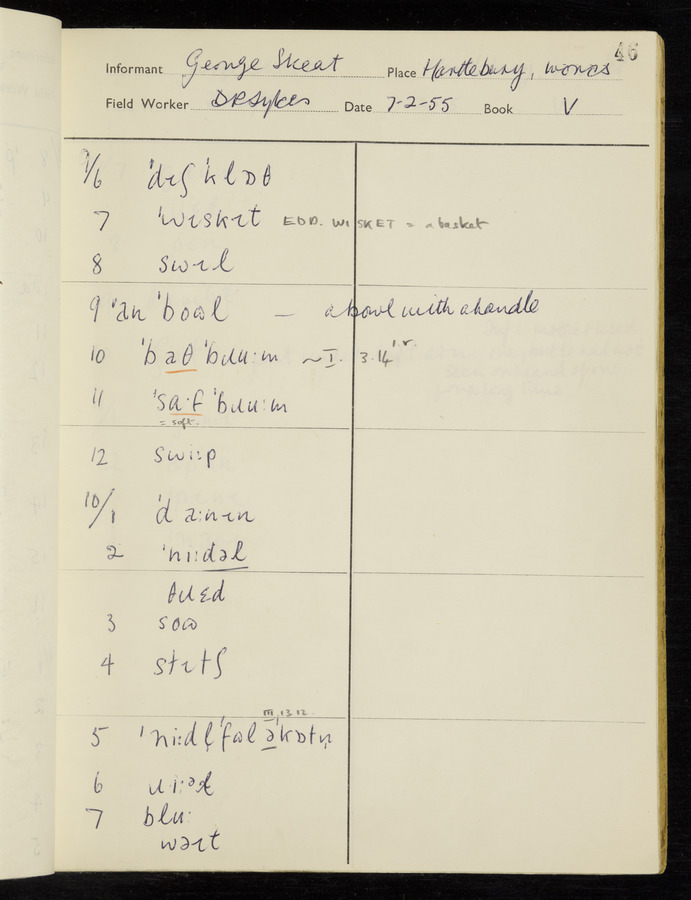 46
Informant George Skeat Place Hartlebury, Worcs
Field Worker D R Sykes Date 7-2-55 Book V
9/6 ˈdɪʃ ˈklɒθ
7 ˈwɪskɪt EDD. WISKET = a basket
8 swɪl
9 ˈan ˈboʊl — a bowl with a handle
10 ˈbaθ ˈbɹuːm ~ I. 3.14
11 ˈsaˑf ˈbɹuːm
= soft.
12 swiːp
10/1 ˈdaːnɪn
2 ˈniːdəl
θɹɛd
3 soʊ
4 stɪtʃ
III, 13.12
5 ˈniːdl̩ ˈfʊl ə ˈkɒtn̩
6
7 bluː
wəɪt